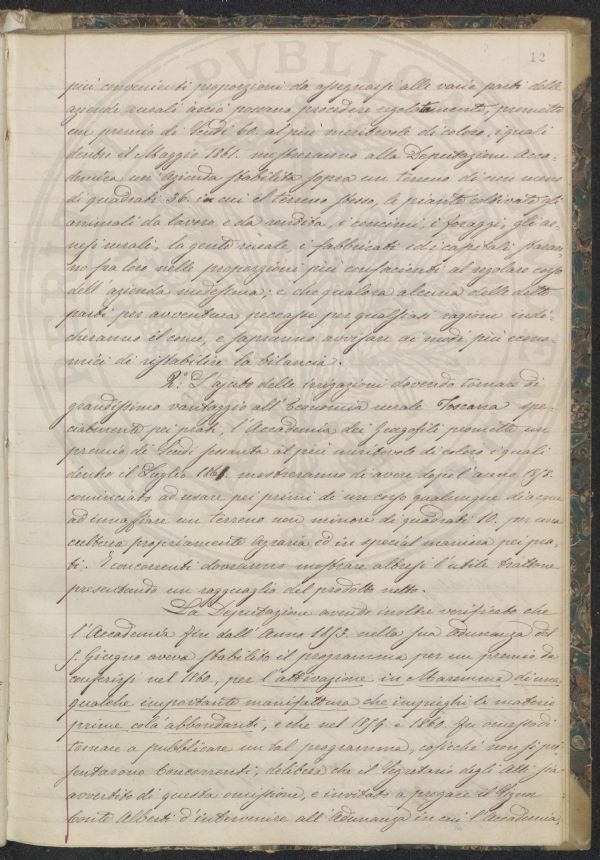 12
più convenienti proporzioni da assegnarsi alle varie parti delle
aziende rurali acciò possano procedere regolatamente, promette
un premio di Scudi 60. al più meritevole di coloro, i quali
dentro il Maggio 1861. mostreranno alla Deputazione Acca-
demica un'azienda stabilita sopra un terreno di non meno
di quadrati 36. in cui il terreno stesso, le piante coltivate gli
animali da lavoro e da rendita, i concimi, i foraggi, gli ar-
nesi rurali, la gente rurale, i fabbricati ed i capitali staran-
no fra loro nelle proporzioni più confacienti al regolare corso
dell'azienda medesima; e che qualora alcuna delle dette
parti per avventura peccasse per qualsiasi cagione indi-
cheranno il come, e sapranno avvisare ai modi più econo-
mici di ristabilire la bilancia.
2.° L'ajuto delle irrigazioni dovendo tornare di
grandissimo vantaggio all'Economia rurale Toscana spe-
cialmente pei prati, l'Accademia dei Georgofili promette un
premio di Scudi sessanta al più meritevole di coloro i quali
dentro il Luglio 1861. mostreranno di avere dopo l'anno 1857.
cominciato ad usare pei primi di un corso qualunque d'acqua
ad innaffiare un terreno non minore di quadrati 10. per una
cultura propriamente Agraria ed in special maniera pei pra-
ti. I concorrenti dovranno mostrare altresì l'utile trattone
presentando un ragguaglio del prodotto netto.
La Deputazione avendo inoltre verificato che
l'Accademia fin dall'Anno 1853. nella sua adunanza del
5. Giugno aveva stabilito il programma per un premio da
conferirsi nel 1860, per l'attivazione in Maremma di una
qualche importante manifattura che impieghi le materie
prime colà abbondanti, e che nel 1854 e 1860. fu omesso di
tornare a pubblicare un tal programma, cosicchè non si pre
sentarono Concorrenti; delibera che il Segretario degli Atti sia
avvertito di questa omissione, e invitato a pregare il Signor
Conte Alberti d'intervenire all'Adunanza in cui l'Accademia,